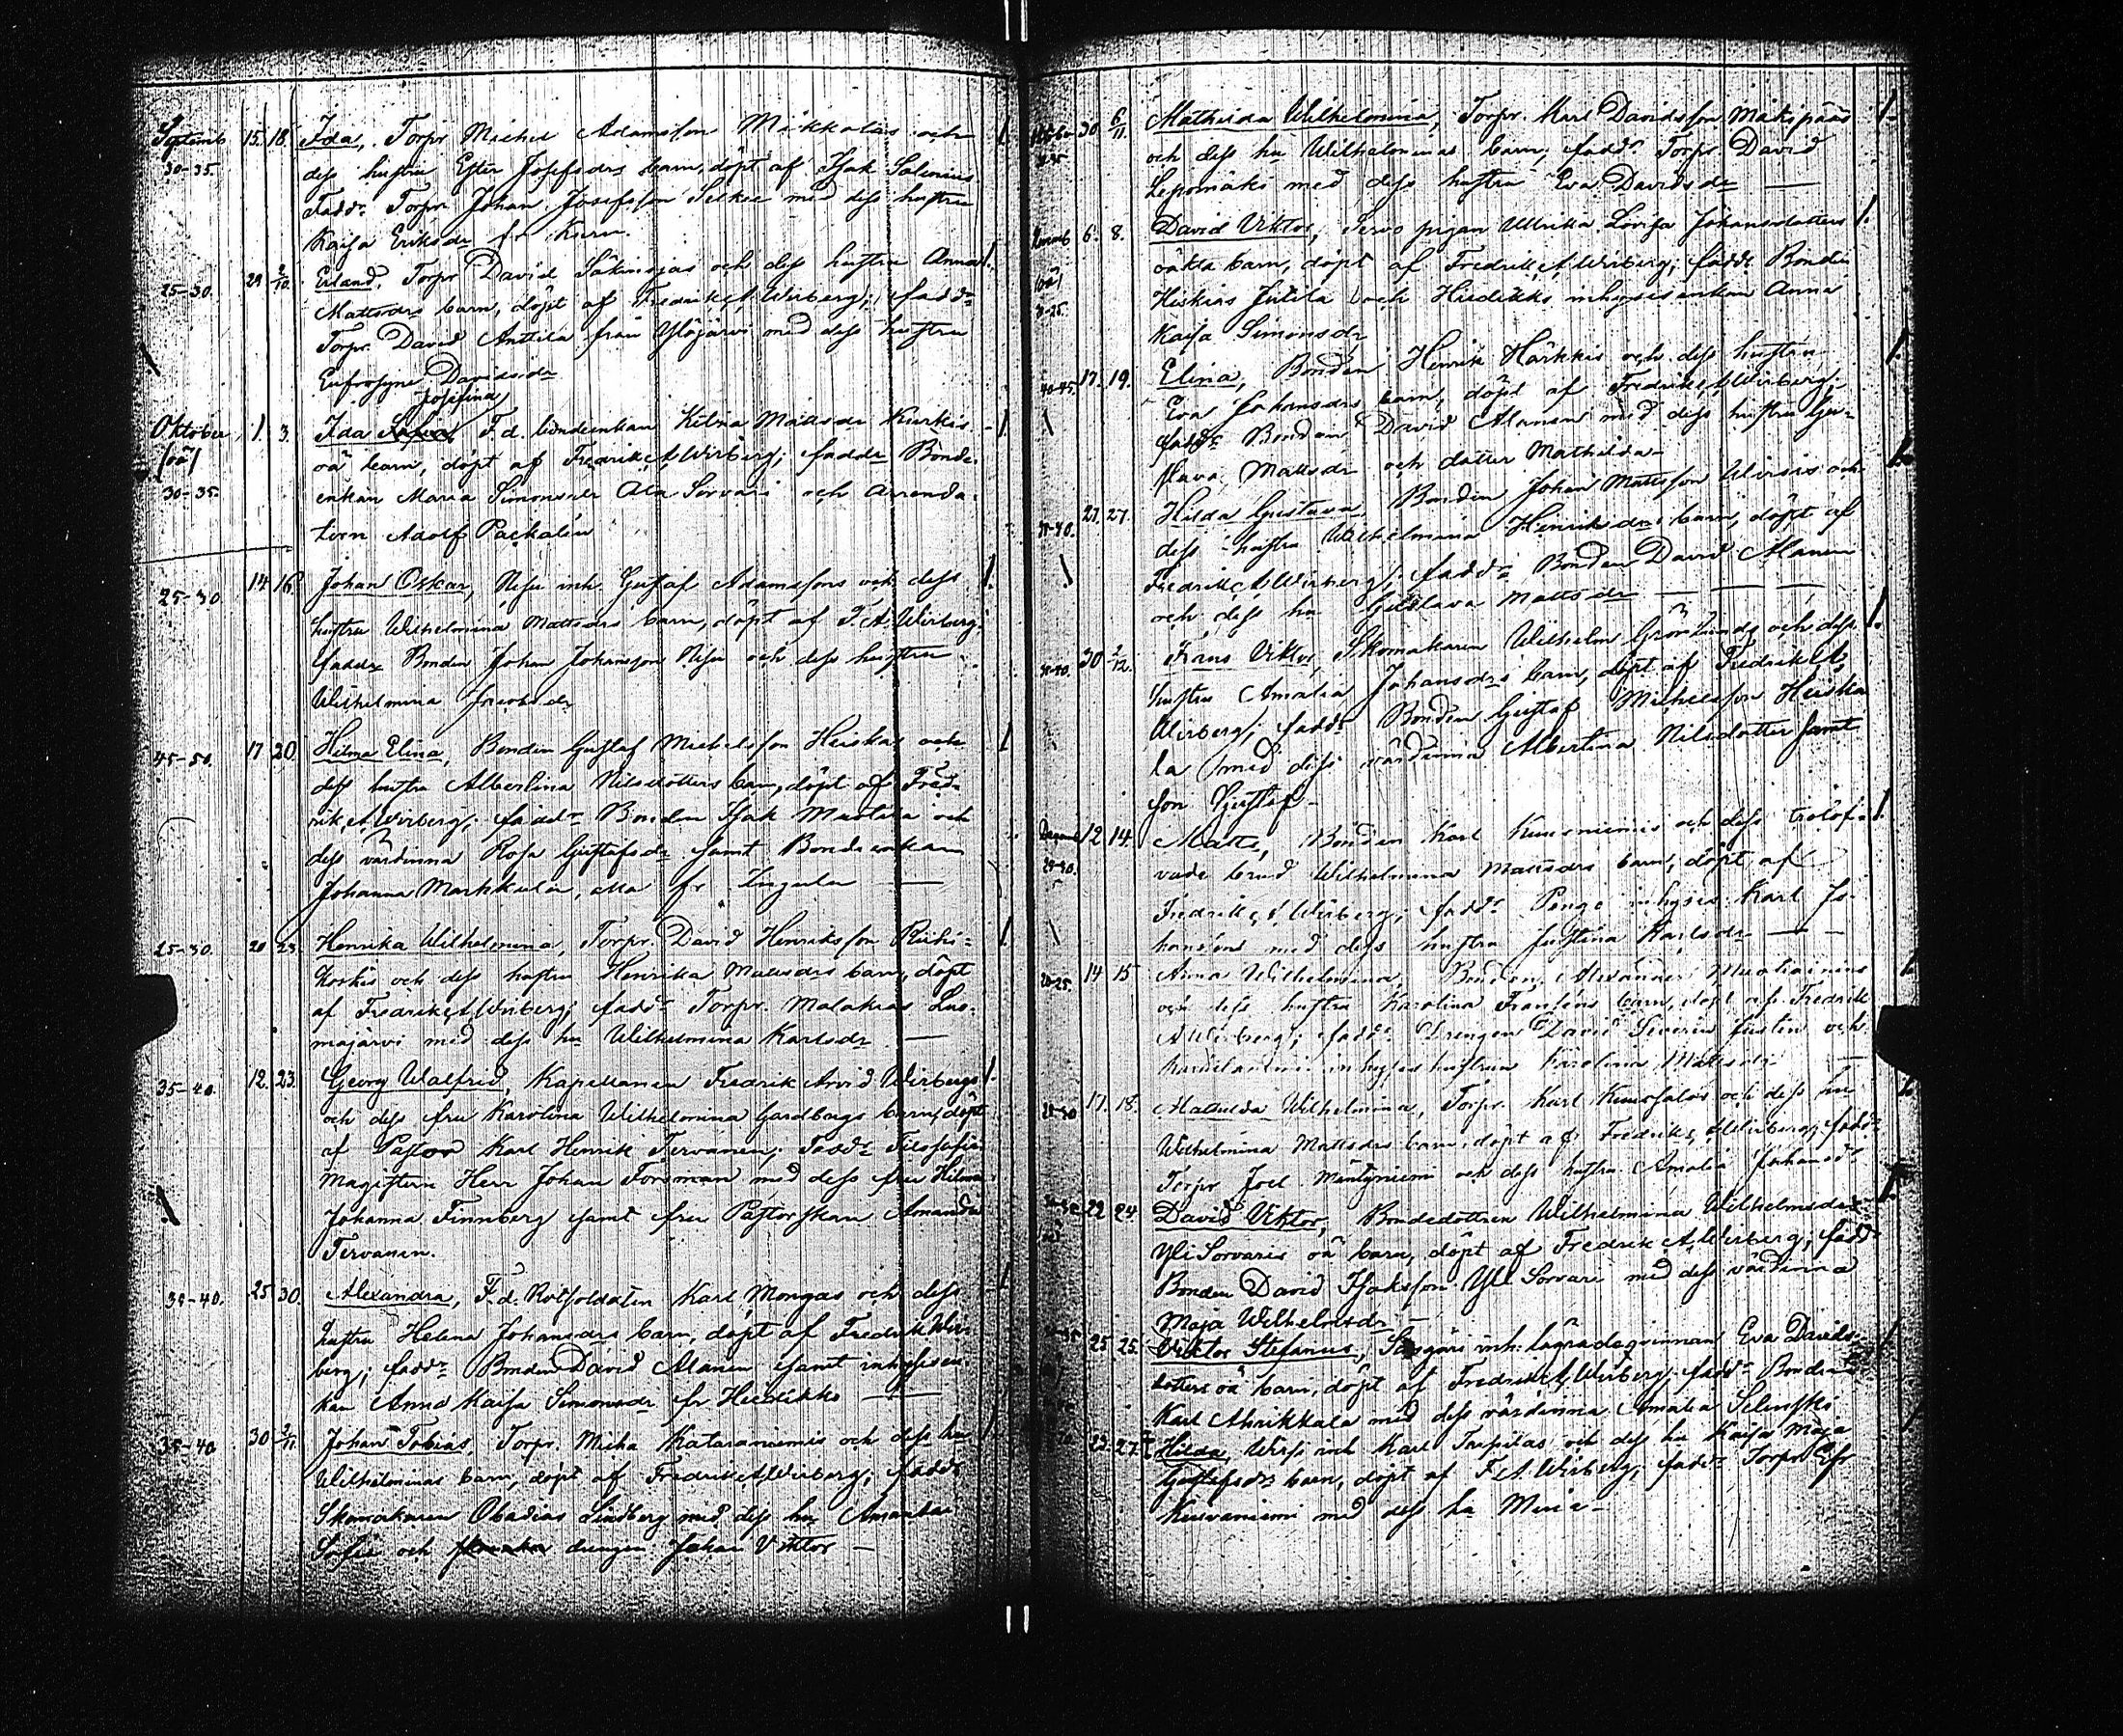 Septemb 15. 18. Ida, Torpr Michel Adamsson Mikkolas och
30-35. dess hustru Ester Josefsdrs barn, döpt af Isak Salonius
Faddr Torpr Johan Josefsson med dess hustru
Kaisa Eriksdr fr
25-30. 29 2/10. Erland, Torpr David och dess hustru Anna
Mattsdrs barn, döpt af Fredrik A Wirberg; faddr
Torpr. David Anttila från Ylöjärvi med dess hustru
Eufrosyne Davidsdr
Josefina
Oktober 1. 3. Ida F.d. bondenkan Mattsdr Kurkis
(oä) oä barn, döpt af Fredrik A Wirberg; faddr Bonde-
30-35. enkan Maria Simonsdr Ala Sorvari och Arrenda-
torn Adolf Packalén
25-30 14 16 Johan Oskar, inh. Gustaf Adamssons och dess
hustru Wilhelmina Mattsdrs barn, döpt af F. A. Wirberg;
faddr Bonden Johan Johansson och dess hustru
Wilhelmina Jacobsdr
45-50. 17 20 Hilma Elina, Bonden Gustaf Michelsson Heiskas och
dess hustru Albertina Nilsdotters barn, döpt af Fred-
rik A Wirberg; faddr Bonden Isak och
dess värdinna Rosa Gustafsdr samt Bondeenkan
Johanna Markkula, fr.
25-30. 20 23. Henrika Wilhelmina, Torpr. David Henriksson
koskis och dess hustru Henrika Mattsdrs barn, döpt
af Fredrik A Wirberg; faddr Torpr. Malakias
majärvi med dess hu Wilhelmina Karlsdr
35-40. 12. 23. Georg Walfrid, Kapellanen Fredrik Arvid Wirbergs
och dess fru Karolina Wilhelmina Gardbergs barn, döpt
af Pastor Karl Henrik Tervanen; Faddr Filosofie
Magistern Herr Johan Forsman med dess fru Hilma
Johanna Finnberg samt fru Pastorskan Amanda
Tervanen.
35-40. 25 30. Alexandra, F.d. Rotsoldaten Karl Mongas och dess
hustru Helena Johansdrs barn, döpt af Fredrik Wir-
berg; faddr Bonden David Alanen samt inhysesen-
kan Anna Kaisa Simonsdr fr Hiedikko
35-40 30 2/11 Johan Tobias Torpr. Micka Kataraniemis och dess hu
Wilhelminas barn, döpt af Fredrik A Wirberg; faddr
Skomakaren Obadias Lindberg med dess hu Amanda
Sofia och drengen Johan Viktor
30 6/11 Mathilda Wilhelmina, Torpr. Karl Davidsson Mäkipääs
och dess hu Wilhelminas barn; faddr Torpr David
Leppomäki med dess hustru Eva Davidsdr
6. 8. David Viktor, pigan Ulrika Lovisa Johansdotters
(oä) oäkta barn, döpt af Fredrik A Wirberg; faddr Bonden
Hiskias Jutila och Hiedikko inhysesenkan Anna
Kaisa Simonsdr
40-45. 17. 19. Elina, Bonden Henrik Härkkis och dess hustru
Eva Johansdrs barn, döpt af Fredrik A Wirberg;
faddr Bonden David Alanen med dess hustru Gu-
stava Mattsdr och dotter Mathilda
27. 27. Hilda Gustava, Bonden Johan Mattsson och
dess hustru Wilhelmina Henriksdrs barn, döpt af
Fredrik A Wirberg; faddr Bonden David Alanen
och dess hu Gustava Mattsdr
30 2/12. Frans Viktor, Skomakaren Wilhelm Grönlunds och dess
hustru Amalia Johansdrs barn, döpt af Fredrik A
Wirberg; faddr Bonden Gustaf Michelsson Heiska
la med dess värdinna Albertina Nilsdotter samt
son Gustaf
12 14. Matts, Bonden Karl och dess trolof-
vade brud Wilhelmina Mattsdrs barn, döpt af
Fredrik A Wirberg; faddr inhyses Karl Jo-
hansson med dess hustru Justina Karlsdr
20-25. 14 15 Anna Wilhelmina, Bonden Alexander
och dess hustru Karolina Fransens barn, döpt af Fredrik
A Wirberg; faddr Drengen David Severin Justén och
inhyseshustrun Karolina Mattsdr
17. 18. Mathilda Wilhelmina, Torpr. Karl och dess hu
Wilhelmina Mattsdrs barn, döpt af Fredrik A Wirberg; faddr
Torpr Joel Mäntyniemi och dess hustru Amalia Johansdr
22 24 David Viktor, Bondedottren Wilhelmina Wilhelmsdr
Yli Sorvaris oä barn, döpt af Fredrik A Wirberg; fadd
Bonden David Isaksson Yli Sorvari med dess värdinna
Maja Wilhelmsdr
25. 25. Viktor Stefanus, inh. lägradeqvinnan Eva Davids-
dotters oä barn, döpt af Fredrik A Wirberg; faddr Bonden
Karl Ahrikkala med dess värdinna Amalia Selinski
23. 27. Hilda, inh Karl och dess hu Kaisa Maja
Gustafsdrs barn, döpt af F. A. Wirberg; faddr Torpr
med dess hu